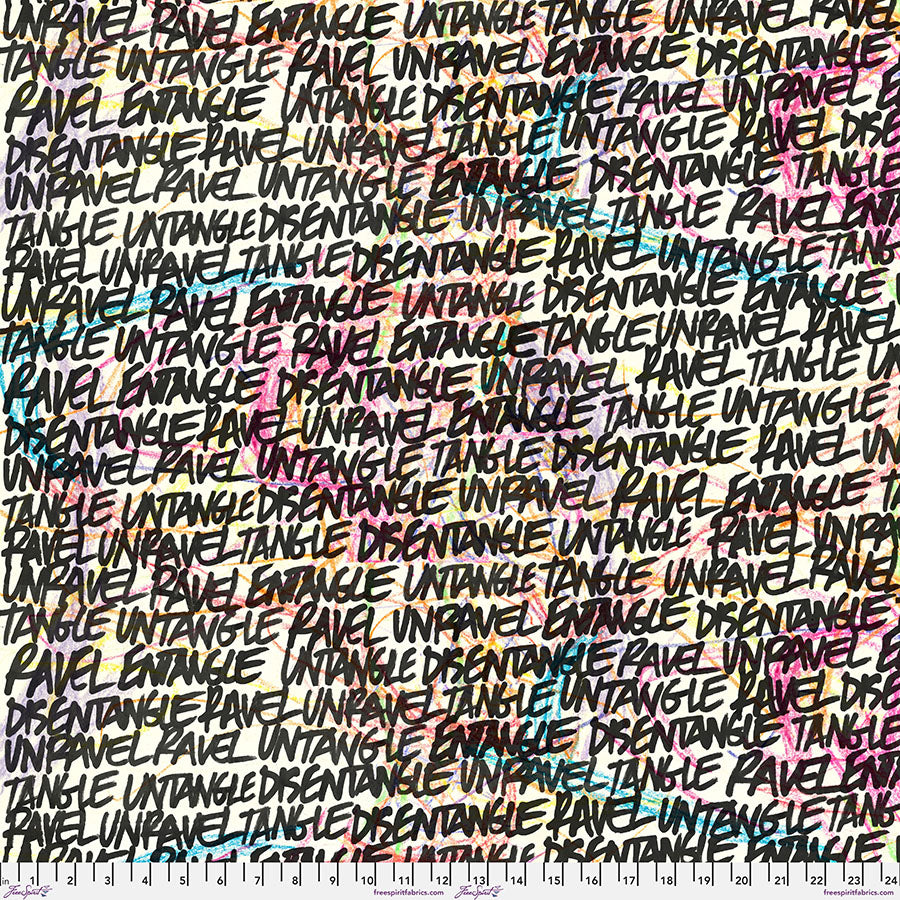 UNRAVEL RAVEL ENTANGLE UNTANGLE TANGLE UNRAVEL RAVEL
TANGLE UNTANGLE RAVEL UNRAVEL ENTANGLE DISENTANGLE
RAVEL ENTANGLE UNTANGLE DISENTANGLE RAVEL UNRAVEL E
DISENTANGLE RAVEL UNRAVEL TANGLE UNTANGLE RAVEL DISE
UNRAVEL RAVEL UNTANGLE ENTANGLE DISENTANGLE TANGLE
TANGLE UNTANGLE DISENTANGLE UNRAVEL TANGLE RAVEL ENT
RAVEL UNRAVEL TANGLE DISENTANGLE RAVEL UNTANGLE TANG
UNRAVEL RAVEL ENTANGLE UNTANGLE DISENTANGLE ENTANGLE
TANGLE UNTANGLE RAVEL ENTANGLE TANGLE UNRAVEL RAVEL
RAVEL ENTANGLE DISENTANGLE UNRAVEL RAVEL TANGLE UN
DISENTANGLE RAVEL UNRAVEL ENTANGLE TANGLE UNTANGLE
UNRAVEL RAVEL UNTANGLE TANGLE DISENTANGLE RAVEL UN
TANGLE UNTANGLE DISENTANGLE UNRAVEL RAVEL ENTANGLE TA
RAVEL UNRAVEL TANGLE DISENTANGLE UNTANGLE RAVEL UNRA
UNRAVEL RAVEL ENTANGLE UNTANGLE TANGLE UNRAVEL RAVEL
TANGLE UNTANGLE RAVEL UNRAVEL ENTANGLE DISENTANGLE
RAVEL ENTANGLE UNTANGLE DISENTANGLE RAVEL UNRAVEL E
DISENTANGLE RAVEL UNRAVEL TANGLE UNTANGLE RAVEL DISE
UNRAVEL RAVEL UNTANGLE ENTANGLE DISENTANGLE TANGLE
TANGLE UNTANGLE DISENTANGLE UNRAVEL TANGLE RAVEL ENT
RAVEL UNRAVEL TANGLE DISENTANGLE RAVEL UNTANGLE TANG
UNRAVEL RAVEL ENTANGLE UNTANGLE DISENTANGLE ENTANGLE
in 1 2 3 4 5 6 7 8 9 10 11 12 13 14 15 16 17 18 19 20 21 22 23 24
FreeSpirit freespiritfabrics.com FreeSpirit freespiritfabrics.com